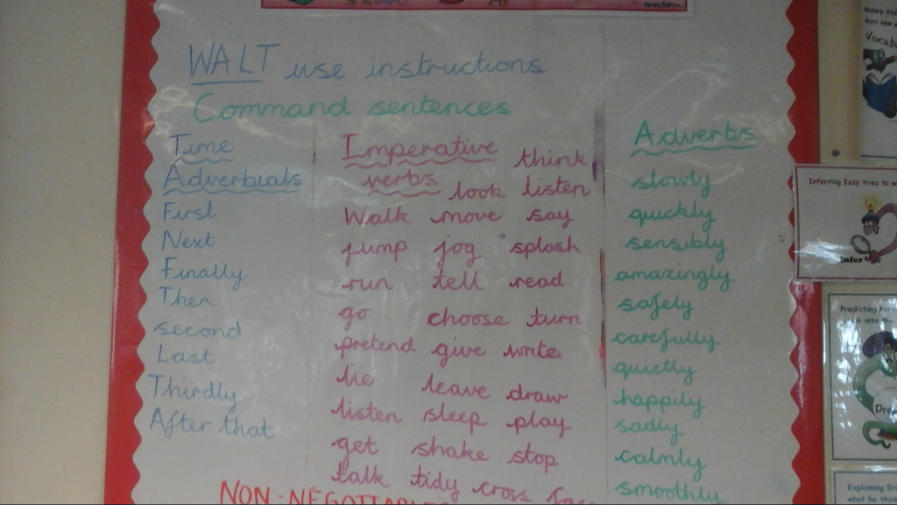 WALT use instructions
Command sentences
Time
Adverbials
First
Next
Finally
Then
second
Last
Thirdly
After that
Imperative think
verbs look listen
Walk move say
jump jog splash
run tell read
go choose turn
pretend give write
lie leave draw
listen sleep play
get shake stop
talk tidy cross
Adverbs
slowly
quickly
sensibly
amazingly
safely
carefully
quietly
happily
sadly
calmly
smoothly
NON-NEGOTIABLE
Inferring Iggy tries to
Infer
Predicting
into the
Explaining
what he